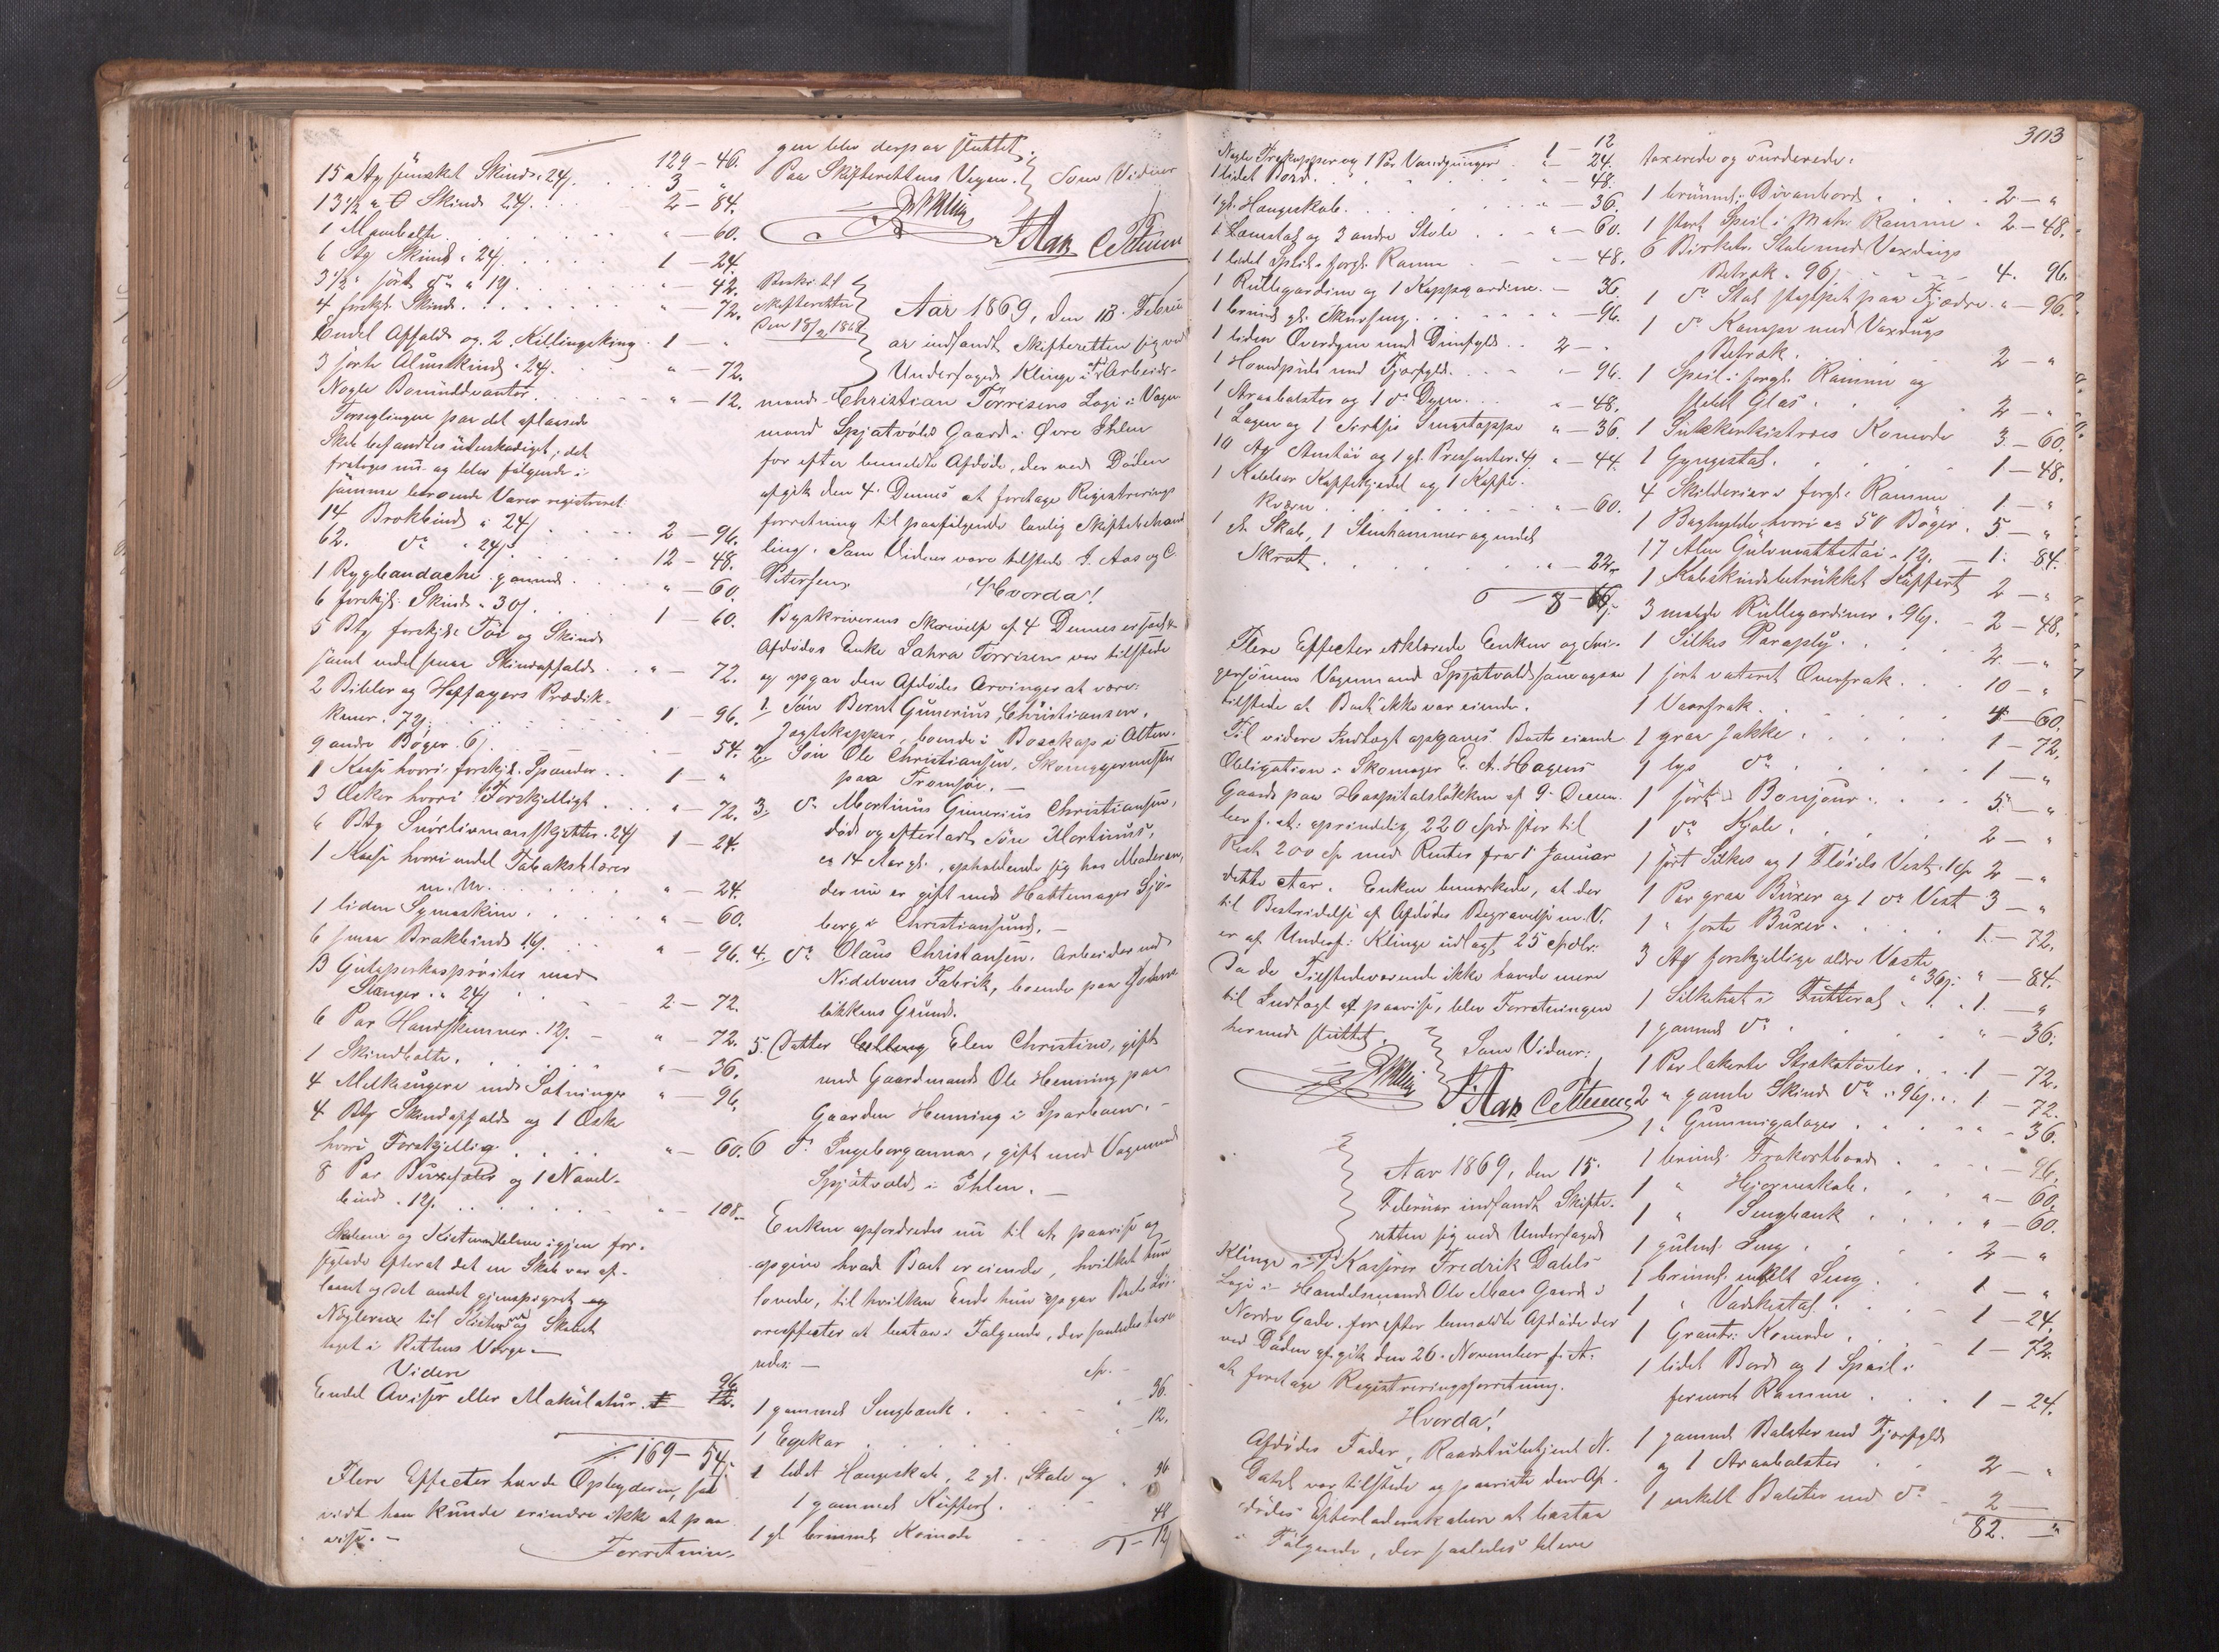 129 - 46.
15 Stk sunsket Skind a 24ß. 3 - "
13 1/2 " D Skind 24ß. 2 - 84.
1 Mavebelte " - 60.
6 Stk Skind a 24ß. 1 - 24.
3 1/2 " sort do " 12 " - 42.
4 forskj. Skind. " - 72.
Endel Affald og 2 Killingsking 1 - "
3 sorte Alunskind a 24ß. " - 72.
Nogle Bomuldsvanter. " - 12.
Forseglingen paa det aflaasede
Skab befandtes ubeskadiget; det
fratoges nu og blev følgende i
samme beroende Varer registreret
14 Brokbind a 24ß 2 - 96.
62. do a 24ß. 12 - 48.
1 Rygbandache gammel " - 60.
6 forskjel: Skind a 30ß. 1 - 60.
5 Stk forskjel: Tøi og Skind
samt endel smaa Skindaffald " - 72.
2 Bibler og Hoffagers Prædik-
kener. 72ß. 1 - 96.
9 andre Bøger 6ß " - 54.
1 Kasse hvori forskjel. Spænder 1 - "
3 Æsker hvori Forskjelligt " - 72.
6 Stk Snørlivmaskjetter 24ß 1 - 24.
1 Kasse hvori endel Tobakskløver
m. m. " - 24.
1 liden Symaskine " - 60.
6 smaa Brokbind 16ß. " - 96.
13 Gutaperkasprøiter med
Slanger a 24ß 2 - 72.
6 Par Handskeummer 12ß. " - 72.
1 Skindbelte. " - 36.
4 Melksugere med Sætninger " - 96.
4 Stk Skindaffald og 1 Æske
hvori Forskjellig " - 60.
8 Par Buxeseler og 1 Navel-
bind 12ß. " - 108.
Skabene og Kisten blev igjen for-
seglede efterat det ene Skab var af-
laaset og det andet gjenspigret og
Nøglerne til Kisten og Skabet
taget i Rettens Værge.
Videre
Endel Aviser eller Makulatur 96.
169 - 54
Flere Effecter havde Opbyderen, saa
vidt han kunde erindre ikke at paa
vise. -
Forretnin-
gen blev derpaa sluttet.
Paa Skifterettens Vegne. Som Vidner
J Aas C Petersen
Beskr. til
Skifteretten
den 18/2 1869
Aar 1869, den 13. Febru
ar indfandt Skifteretten sig ved
Undersaged Klinge i Arbeids-
mand Christian Torrisens Logi i Vogn
mand Spjøtvolds Gaard i Øvre Ihlen
for efter bemeldte Afdøde, der ved Døden
afgik den 4. Dennes at foretage Registrerings
forretning til paafølgende lovlig Skiftebehand
ling. Som Vidner vare tilstede J. Aas og C.
Petersen
Hvorda!
Byskriverens Skrivelse af 4 Dennes er saal.
Afdødes Enke Sahra Torrisen var tilstede
og opgav den Afdødes Arvinger at være:
1. Søn Bernt Gunerius Christiansen,
Jagtskipper, boende i Bosekop i Alten.
2. Søn Ole Christiansen, Skomagermester
paa Tromsøe. -
3. do Mortinus Gunerius Christiansen,
død og efterladt Søn Mortinus,
ca 14 Aar gl., opholdende sig hos Moderen,
der nu er gift med Hattemager Sjø-
berg i Christiansund. -
4. do Olaus Christansen. Arbeider ved
Nidelvens Fabrik, boende paa
løkkens Grund.
5. Datter Elen Christine, gift
med Gaardmand Ole Henning paa
Gaarden Henning i Sparboen. -
6 do Ingeborganna, gift med Vognmand
Spjøtvold i Ihlen. -
Enken opfordredes nu til at paavise og
opgive hvad Boet er eiende, hvilket hun
lovede, til hvilken Ende hun opgav Boets Løs-
øreeffecter at bestaa i Følgende, der saaledes taxe
redes: -
Sp. -
1 gammel Sengbænk " 36.
1 Egekar " 12.
1 lidet Hængeskab, 2 gl. Stole og " 36
1 gammel Kuffert.
1 gl brunmalt Komode 48
1 - 12
303
1 - 12
Nogle Trækopper og 1 Par Vandspringer " - 24.
1 lidet Bord. " - 48.
1 gl. Hængeskab. " - 36.
1 Lænestol og 2 andre Stole " - 60.
1 lidet Speil i forgl. Ramme - 48.
1 Rullegardin og 1 Kappegardine. - 36
1 brunm. gl. Skuvseng. - 96.
1 liden Overdyne med Dunfyld 2 - "
1 Hovedpude med Fjærfyld. " - 96.
1 Straabolster og 1 do Dyne. " - 48.
1 Lagen og 1 Sengetæppe " - 36.
10 Stk Stentøi og 1 gl. Presenter. 4ß. " - 44.
1 Kobber Kaffekjedel og 1 Kaffe-
kværn " - 60.
1 Skab, 1 Stenhammer og endel
Skrot. " - 22
8 -
Flere Effecter erklærede Enken og Svi-
gersønnen Vognmand Spjøtvold som ogsaa
tilstede at Boet ikke var eiende.
Til videre Indtægt opgaves Boets eiende
Obligation i Skomager E. A. Hagens
Gaard paa Hospitalsløkken af 9. Decem-
ber f. A. oprindelig 220 Spd. stor til
Rest 200 Sp med Renter fra 1 Januar
dette Aar. Enken bemærkede, at der
til Bestridelse af Afdødes Begravelse m. V.
er af Unders: Klinge udlagt 25 Spdlr.
Da de Tilstedeværende ikke havde mere
til Indtægt at paavise, blev Forretningen
hermed sluttet.
Som Vidner:
J Aas C Petersen
Aar 1869, den 15.
Februar indfandt Skifte-
retten sig ved Undersaged
Klinge i Kasserer Fredrik Dahls
Logi i Handelsmand Ole Moes Gaard i
Nordre Gade for efter bemeldte Afdøde der
ved Døden afgik den 26. November f. A.
at foretage Registreringsforretning.
Hvorda!
Afdødes Fader, Raadstutjent N.
Dahl var tilstede og paaviste den Af-
dødes Efterladenskaber at bestaa
i Følgende, der saaledes bleve
taxerede og vurderede:
1 brunm. Divanbord 2 - "
1 stort Speil i Mah. Ramme 2 - 48.
6 Birketr. Stole med Voxdugs
Betræk. 96ß 4. 96.
1 do Stol stoppet paa Fjædre. " - 96.
1 do Kanape med Voxdugs
Betræk. 2 - "
1 Speil i forgl. Ramme og
Glas 2 - "
1 Sukkerkistetræes Komode 3 - 60.
1 Gyngestol. 1 - 48.
4 Skilderier i forgl. Ramme 1 - "
1 Boghylde hvori ca 50 Bøger 5 - "
17 Alen Gulvmattetøi a 12ß. 1 - 84.
1 Kobskindsbetrukket Kuffert 2 - "
3 malede Rullegardiner a 96ß. 2 - 48.
1 Silkes Paraply. 2 - "
1 sort vateret Overfrak. 10 - "
1 Vaarfrak. 4 - 60.
1 graa Jakke 1 - 72.
1 lys do 1 - "
1 sort Bonjour 5 - "
1 do Kjole. 2 - "
1 sort Silkes og 1 Fløiels Vest a 1 Sp 2 - "
1 Par graa Buxer og 1 do Vest 3 - "
1 " sorte Buxer. 1 - 72.
3 Stk forskjellige ældre Veste
a 36ß: " - 84.
1 Silkehat i Futteral 1 - "
1 gammel do " - 36.
1 Par lakerte Strækstøvler 1 - 72.
2 " gamle Skind do a 96ß. 1 - 72.
1 " Gummigaloger " - 36.
1 brunm. Frokostbord " - 96.
1 " Hjørneskab. " - 60.
1 " Sengbænk " - 60.
1 gulm. Seng 2 - "
1 brunm. enkelt Seng 1 - "
1 " Vadskestol. 1 - 24.
1 Grantr. Komode. 1 - 72.
1 lidet Bord og 1 Speil i
ferneret Ramme 1 - 24.
1 gammel Bolster med Fjærfyld
og 1 Straabolster 2 - "
1 enkelt Bolster med do 2 - "
82. - "